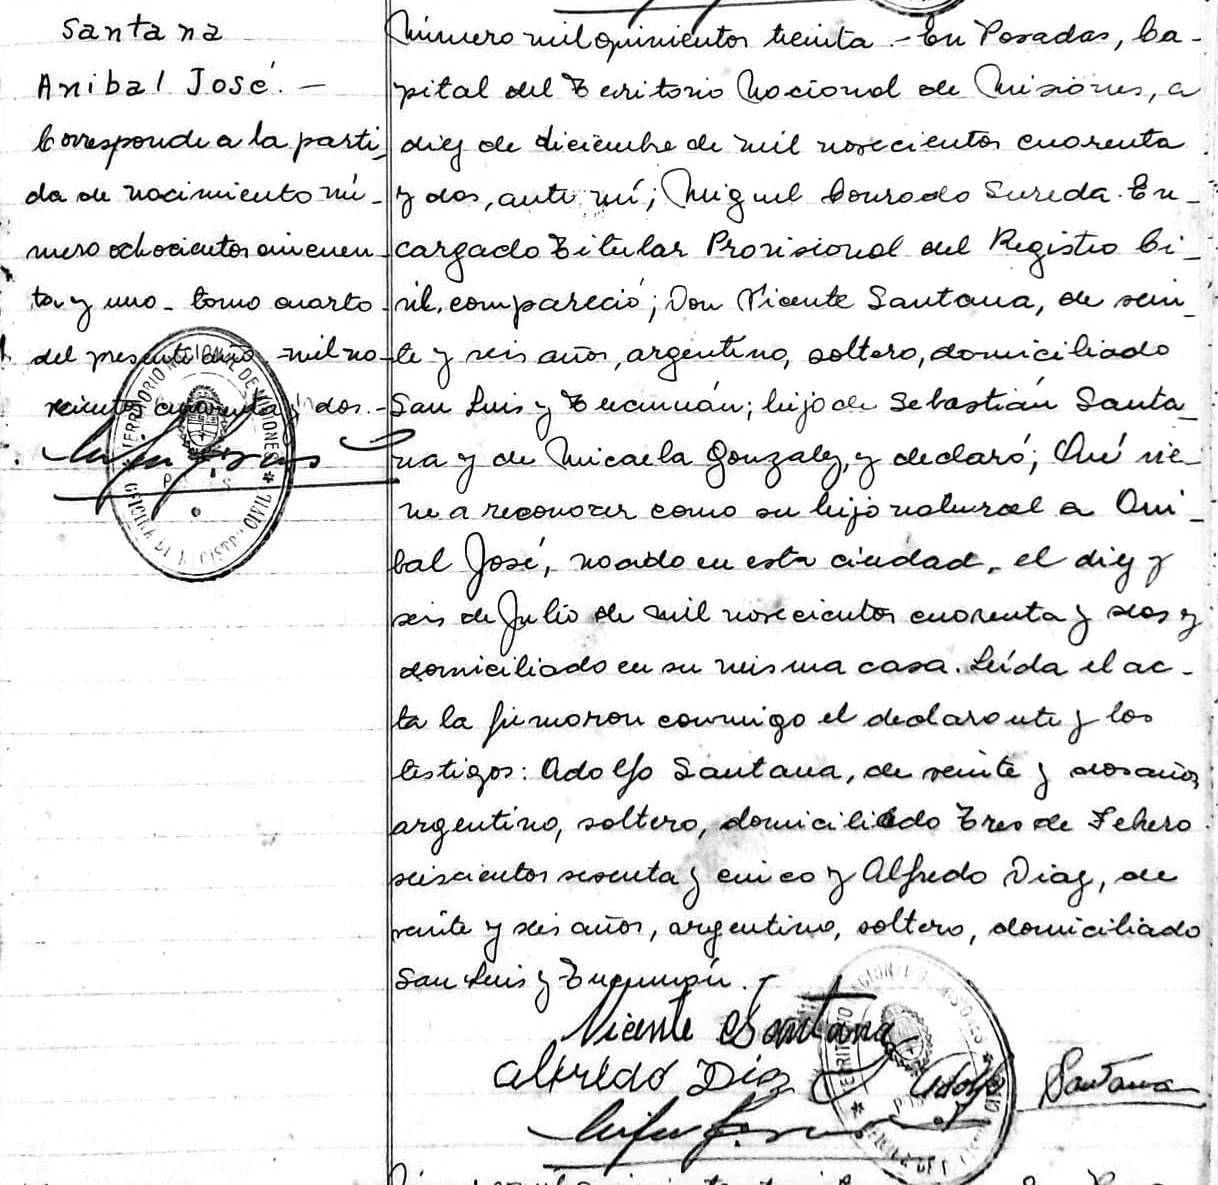 Santana
Anibal José. —
Corresponde a la parti-
da de nacimiento nú-
mero ochocientos cincuen-
ta y uno - tomo cuarto
del presente año, mil no-
vecientos cuarenta y dos.-
Número mil quinientos treinta.- En Posadas, Ca-
pital del Territorio Nacional de Misiones, a
diez de diciembre de mil novecientos cuarenta
y dos, ante mí; Miguel Conrado Sureda. En-
cargado Titular Provisional del Registro Ci-
vil, compareció; Don Vicente Santana, de vein-
te y seis años, argentino, soltero, domiciliado
San Luis y Tucumán; hijo de Sebastián Santa-
na y de Micaela Gonzalez, y declaró; Qué vie-
ne a reconocer como su hijo natural a Ani-
bal José, nacido en esta ciudad, el diez y
seis de Julio de mil novecientos cuarenta y dos y
domiciliado en su misma casa. Leída el ac-
ta la firmaron conmigo el declarante y los
testigos: Adolfo Santana, de veinte y dos años,
argentino, soltero, domiciliado Tres de Febrero
seiscientos sesenta y cinco y Alfredo Diaz, de
veinte y seis años, argentino, soltero, domiciliado
San Luis y Tucumán. -
Vicente Santana
Alfredo Diaz Adolfo Santana
TERRITORIO NACIONAL DE MISIONES
OFICINA DEL REGISTRO CIVIL